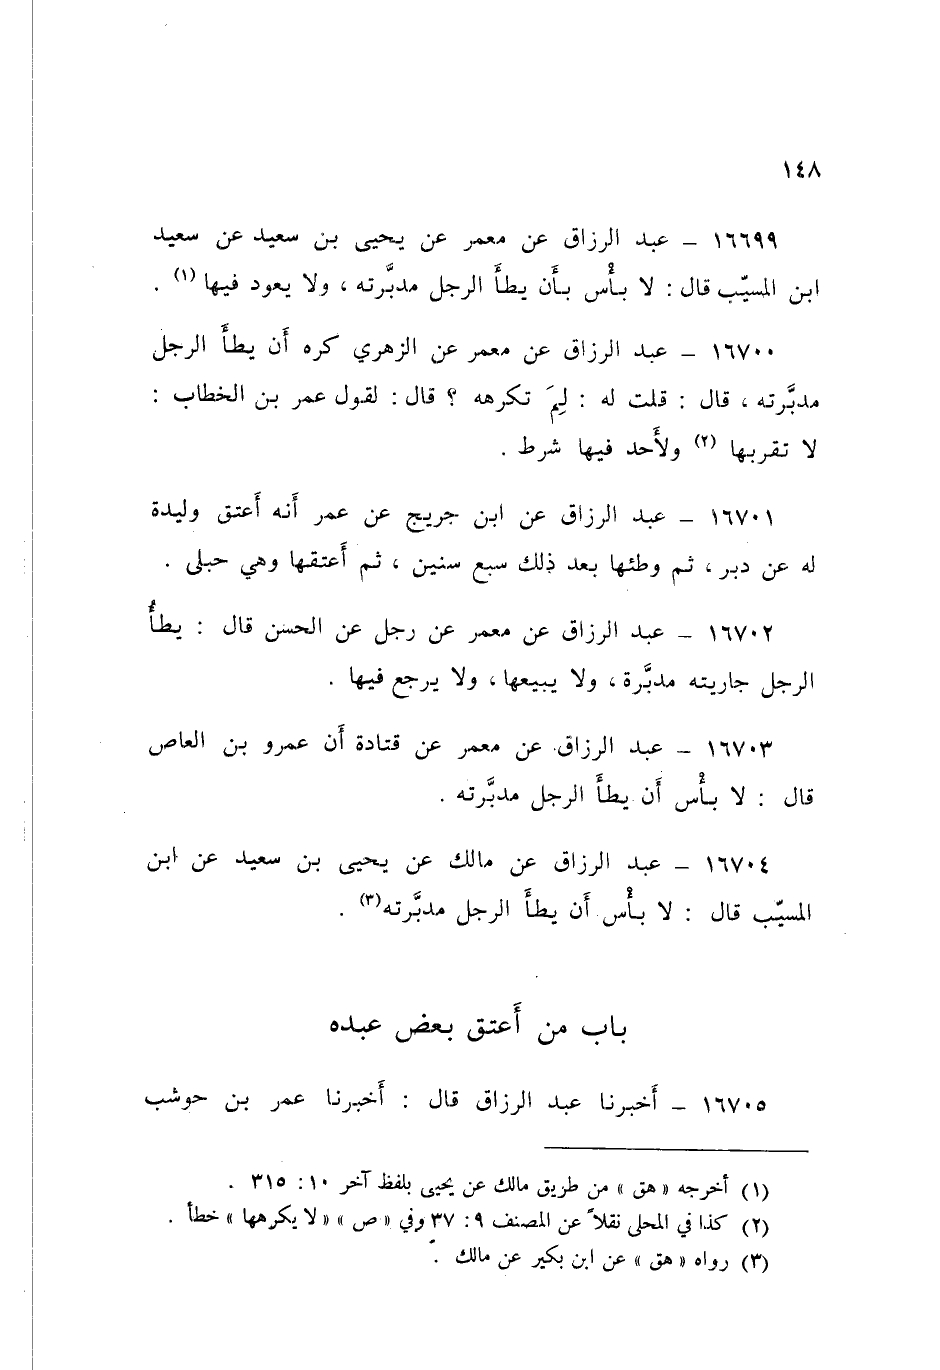 ١٤٨
١٦٦٩٩ – عبد الرزاق عن معمر عن يحيى بن سعيد عن سعيد
ابن المسيّب قال : لا بأْس بأَن يطأَ الرجل مدبَّرته ، ولا يعود فيها (١) .
١٦٧٠٠ – عبد الرزاق عن معمر عن الزهري كره أَن يطأَ الرجل
مدبَّرته ، قال : قلت له : لِمَ تكرهه ؟ قال : لقول عمر بن الخطاب :
لا تقربها (٢) ولأَحد فيها شرط .
١٦٧٠١ – عبد الرزاق عن ابن جريج عن عمر أَنه أَعتق وليدة
له عن دبر ، ثم وطئها بعد ذلك سبع سنين ، ثم أَعتقها وهي حبلى .
١٦٧٠٢ – عبد الرزاق عن معمر عن رجل عن الحسن قال : يطأُ
الرجل جاريته مدبَّرة ، ولا يبيعها ، ولا يرجع فيها .
١٦٧٠٣ – عبد الرزاق عن معمر عن قتادة أَن عمرو بن العاص
قال : لا بأْس أَن يطأَ الرجل مدبَّرته .
١٦٧٠٤ – عبد الرزاق عن مالك عن يحيى بن سعيد عن ابن
المسيّب قال : لا بأْس أَن يطأَ الرجل مدبَّرته (٣) .
باب من أَعتق بعض عبده
١٦٧٠٥ – أَخبرنا عبد الرزاق قال : أَخبرنا عمر بن حوشب
(١) أخرجه « هق » من طريق مالك عن يحيى بلفظ آخر ١٠ : ٣١٥ .
(٢) كذا في المحلى نقلاً عن المصنف ٩ : ٣٧ وفي « ص » « لا يكرهها » خطأ .
(٣) رواه « هق » عن ابن بكير عن مالك .